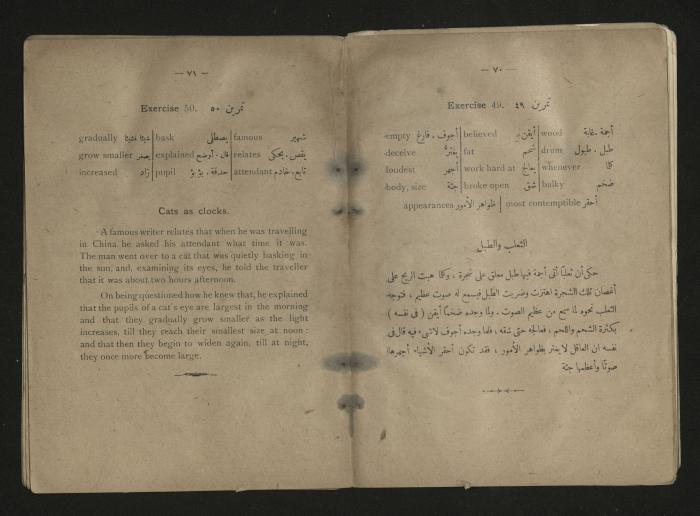 — ٧٠ —
Exercise 49. تمرين ٤٩
empty أجوف . فارغ believed أيقن wood أجمة . غابة
deceive يغترّ fat شحم drum طبل . طبول
loudest أجهر work hard at يعالج whenever كلّما
body, size جثة broke open شق bulky ضخم
appearances ظواهر الأمور most contemptible أحقر
الثعلب والطبل
حكى أن ثعلبًا أتى أجمة فيها طبل معلق على شجرة ، وكلما هبت الريح على
أغصان تلك الشجرة اهتزت وضربت الطبل فيسمع له صوت عظيم ، فتوجه
الثعلب نحوه لما سمع من عظيم الصوت . ولما وجده ضخمًا أيقن ( في نفسه )
بكثرة الشحم واللحم ، فعالجه حتى شقه . فلما وجده أجوف لا شىء فيه قال فى
نفسه ان العاقل لا يغتر بظواهر الأمور ، فقد تكون أحقر الأشياء أجهرها
صوتًا وأعظمها جثة
— ٧١ —
Exercise 50. تمرين ٥٠
gradually شيئًا فشيئًا bask يصطلى famous شهير
grow smaller يصغر explained قال . أوضح relates يقص . يحكى
increased زاد pupil حدقة . بؤبؤ attendant تابع . خادم
Cats as clocks.
A famous writer relates that when he was travelling
in China he asked his attendant what time it was.
The man went over to a cat that was quietly basking in
the sun, and, examining its eyes, he told the traveller
that it was about two hours afternoon.
On being questioned how he knew that, he explained
that the pupils of a cat's eye are largest in the morning
and that they gradually grow smaller as the light
increases, till they reach their smallest size at noon :
and that then they begin to widen again, till at night,
they once more become large.